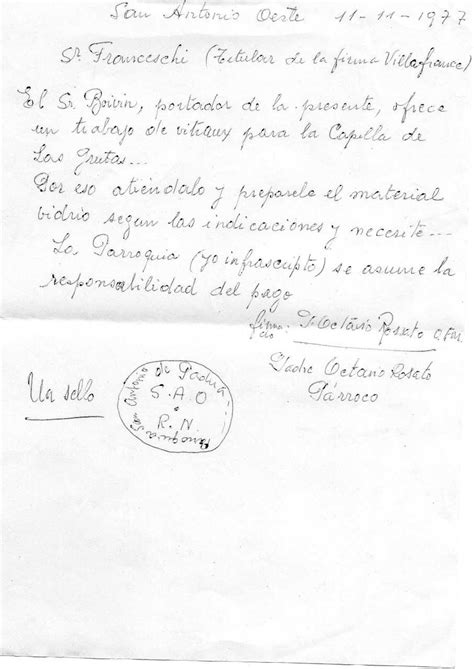 San Antonio Oeste 11-11-1977
Sr. Franceschi (Titular de la firma Villafranca)
El Sr. Boivin, portador de la presente, ofrece
un trabajo de vitraux para la Capilla de
Las Grutas...
Por eso atiéndalo y preparele el material
vidrio segun las indicaciones y necesite...
La Parroquia (yo infrascripto) se asume la
responsabilidad del pago
P. Octavio Rosato
Padre Octavio Rosato
Párroco
Un sello
Parroquia San Antonio de Padua
S.A.O
R.N.